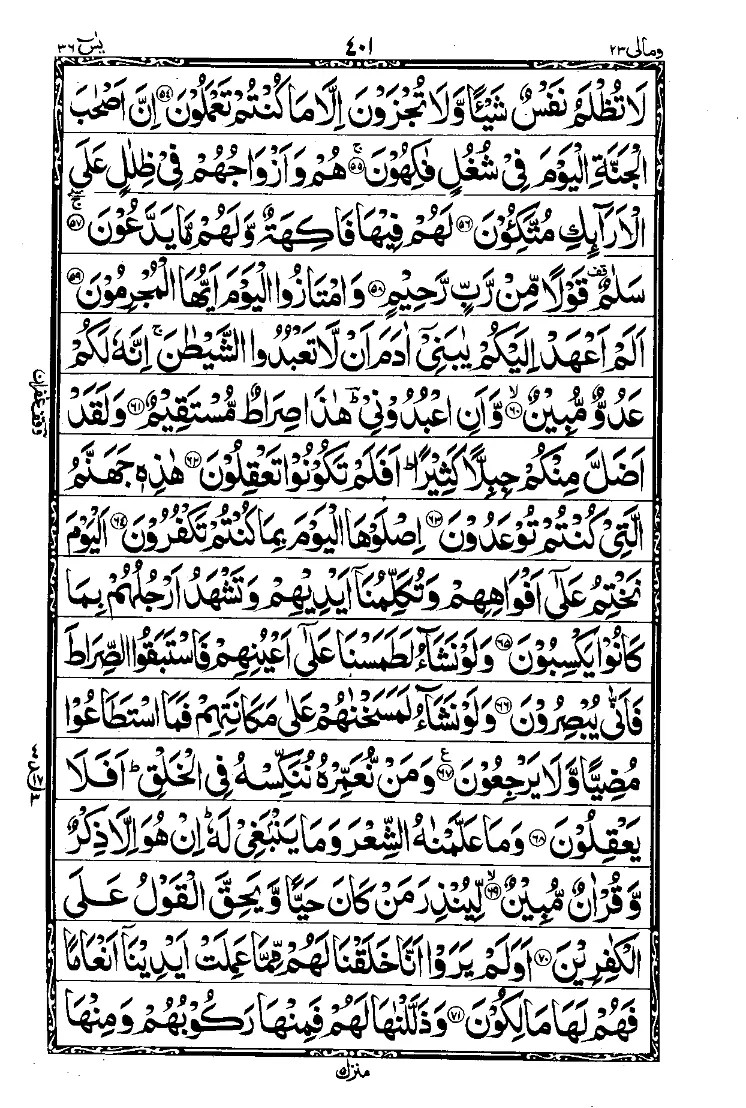 ومالی ٢٣ ٤٠١ يٰسٓ ٣٦
لَا تُظْلَمُ نَفْسٌ شَيْـًٔا وَّلَا تُجْزَوْنَ اِلَّا مَا كُنْتُمْ تَعْمَلُوْنَ ﴿٥٤﴾ اِنَّ اَصْحٰبَ
الْجَنَّةِ الْيَوْمَ فِيْ شُغُلٍ فٰكِهُوْنَ ﴿٥٥﴾ۚ هُمْ وَاَزْوَاجُهُمْ فِيْ ظِلٰلٍ عَلَي
الْاَرَآىِٕكِ مُتَّكِـُٔوْنَ ﴿٥٦﴾ لَهُمْ فِيْهَا فَاكِهَةٌ وَّلَهُمْ مَّا يَدَّعُوْنَ ﴿٥٧﴾
سَلٰمٌ ۣ قَوْلًا مِّنْ رَّبٍّ رَّحِيْمٍ ﴿٥٨﴾ وَامْتَازُوا الْيَوْمَ اَيُّهَا الْمُجْرِمُوْنَ ﴿٥٩﴾
اَلَمْ اَعْهَدْ اِلَيْكُمْ يٰبَنِيْٓ اٰدَمَ اَنْ لَّا تَعْبُدُوا الشَّيْطٰنَ ۚ اِنَّهٗ لَكُمْ
عَدُوٌّ مُّبِيْنٌ ﴿٦٠﴾ۙ وَّاَنِ اعْبُدُوْنِيْ ؔ هٰذَا صِرَاطٌ مُّسْتَقِيْمٌ ﴿٦١﴾ وَلَقَدْ
وقف غفران
اَضَلَّ مِنْكُمْ جِبِلًّا كَثِيْرًا ؕ اَفَلَمْ تَكُوْنُوْا تَعْقِلُوْنَ ﴿٦٢﴾ هٰذِهٖ جَهَنَّمُ
الَّتِيْ كُنْتُمْ تُوْعَدُوْنَ ﴿٦٣﴾ اِصْلَوْهَا الْيَوْمَ بِمَا كُنْتُمْ تَكْفُرُوْنَ ﴿٦٤﴾ اَلْيَوْمَ
نَخْتِمُ عَلٰٓي اَفْوَاهِهِمْ وَتُكَلِّمُنَآ اَيْدِيْهِمْ وَتَشْهَدُ اَرْجُلُهُمْ بِمَا
كَانُوْا يَكْسِبُوْنَ ﴿٦٥﴾ وَلَوْ نَشَآءُ لَطَمَسْنَا عَلٰٓي اَعْيُنِهِمْ فَاسْتَبَقُوا الصِّرَاطَ
فَاَنّٰي يُبْصِرُوْنَ ﴿٦٦﴾ وَلَوْ نَشَآءُ لَمَسَخْنٰهُمْ عَلٰي مَكَانَتِهِمْ فَمَا اسْتَطَاعُوْا
مُضِيًّا وَّلَا يَرْجِعُوْنَ ﴿٦٧﴾ۧ وَمَنْ نُّعَمِّرْهُ نُنَكِّسْهُ فِي الْخَلْقِ ؕ اَفَلَا
يَعْقِلُوْنَ ﴿٦٨﴾ وَمَا عَلَّمْنٰهُ الشِّعْرَ وَمَا يَنْۢبَغِيْ لَهٗ ؕ اِنْ هُوَ اِلَّا ذِكْرٌ
وَّقُرْاٰنٌ مُّبِيْنٌ ﴿٦٩﴾ۙ لِّيُنْذِرَ مَنْ كَانَ حَيًّا وَّيَحِقَّ الْقَوْلُ عَلَي
الْكٰفِرِيْنَ ﴿٧٠﴾ اَوَلَمْ يَرَوْا اَنَّا خَلَقْنَا لَهُمْ مِّمَّا عَمِلَتْ اَيْدِيْنَآ اَنْعَامًا
فَهُمْ لَهَا مٰلِكُوْنَ ﴿٧١﴾ وَذَلَّلْنٰهَا لَهُمْ فَمِنْهَا رَكُوْبُهُمْ وَمِنْهَا
منزل ٥